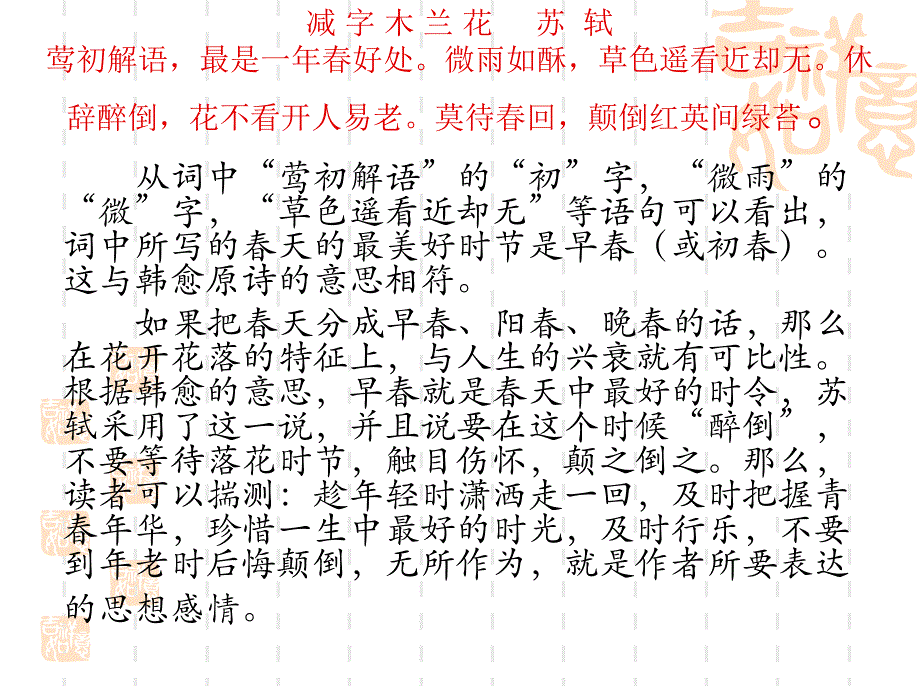 减字木兰花 苏轼
莺初解语，最是一年春好处。微雨如酥，草色遥看近却无。休
辞醉倒，花不看开人易老。莫待春回，颠倒红英间绿苔。
从词中“莺初解语”的“初”字，“微雨”的
“微”字，“草色遥看近却无”等语句可以看出，
词中所写的春天的最美好时节是早春（或初春）。
这与韩愈原诗的意思相符。
如果把春天分成早春、阳春、晚春的话，那么
在花开花落的特征上，与人生的兴衰就有可比性。
根据韩愈的意思，早春就是春天中最好的时令，苏
轼采用了这一说，并且说要在这个时候“醉倒”，
不要等待落花时节，触目伤怀，颠之倒之。那么，
读者可以揣测：趁年轻时潇洒走一回，及时把握青
春年华，珍惜一生中最好的时光，及时行乐，不要
到年老时后悔颠倒，无所作为，就是作者所要表达
的思想感情。